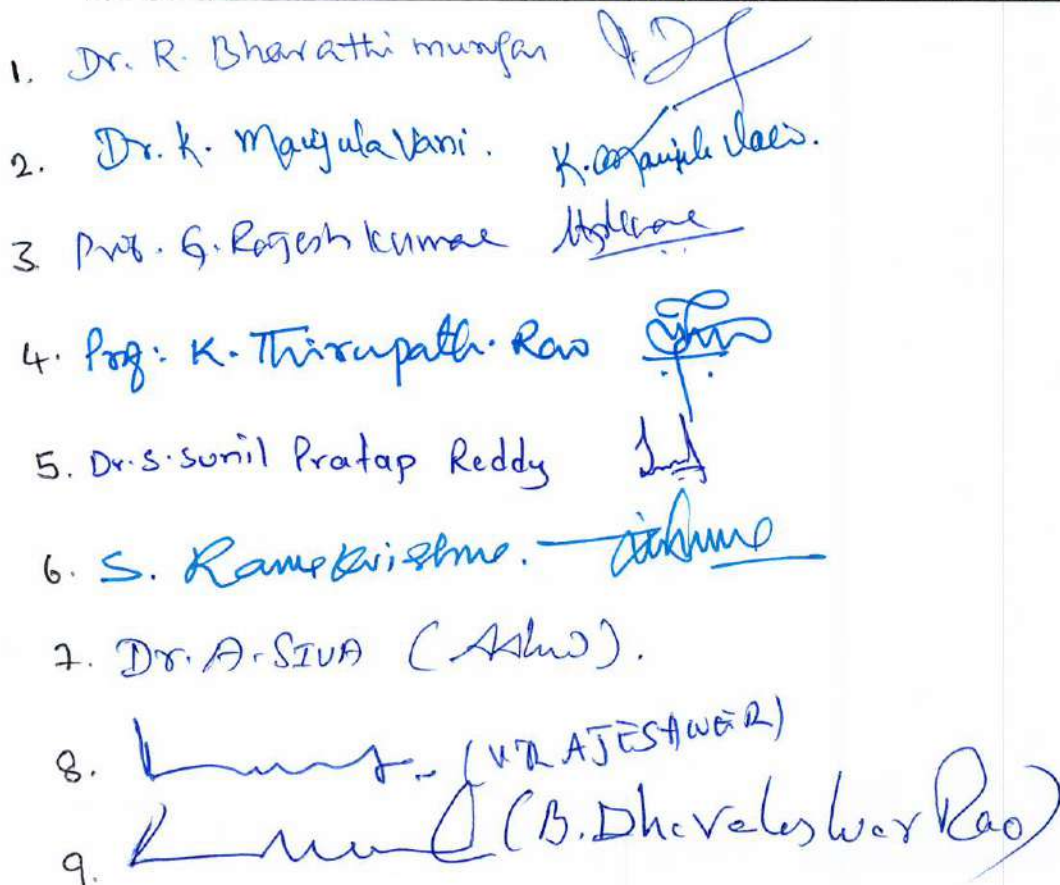 1. Dr. R. Bharathi murugan
2. Dr. K. Manjula Vani. K. Manjula Vani.
3. Prof. G. Rajesh kumar
4. Prof: K. Thirupathi Rao
5. Dr. S. Sunil Pratap Reddy
6. S. Ramakrishna.
7. Dr. A. SIVA
8. (V RAJESHWER)
9. (B. Dhavaleswar Rao)